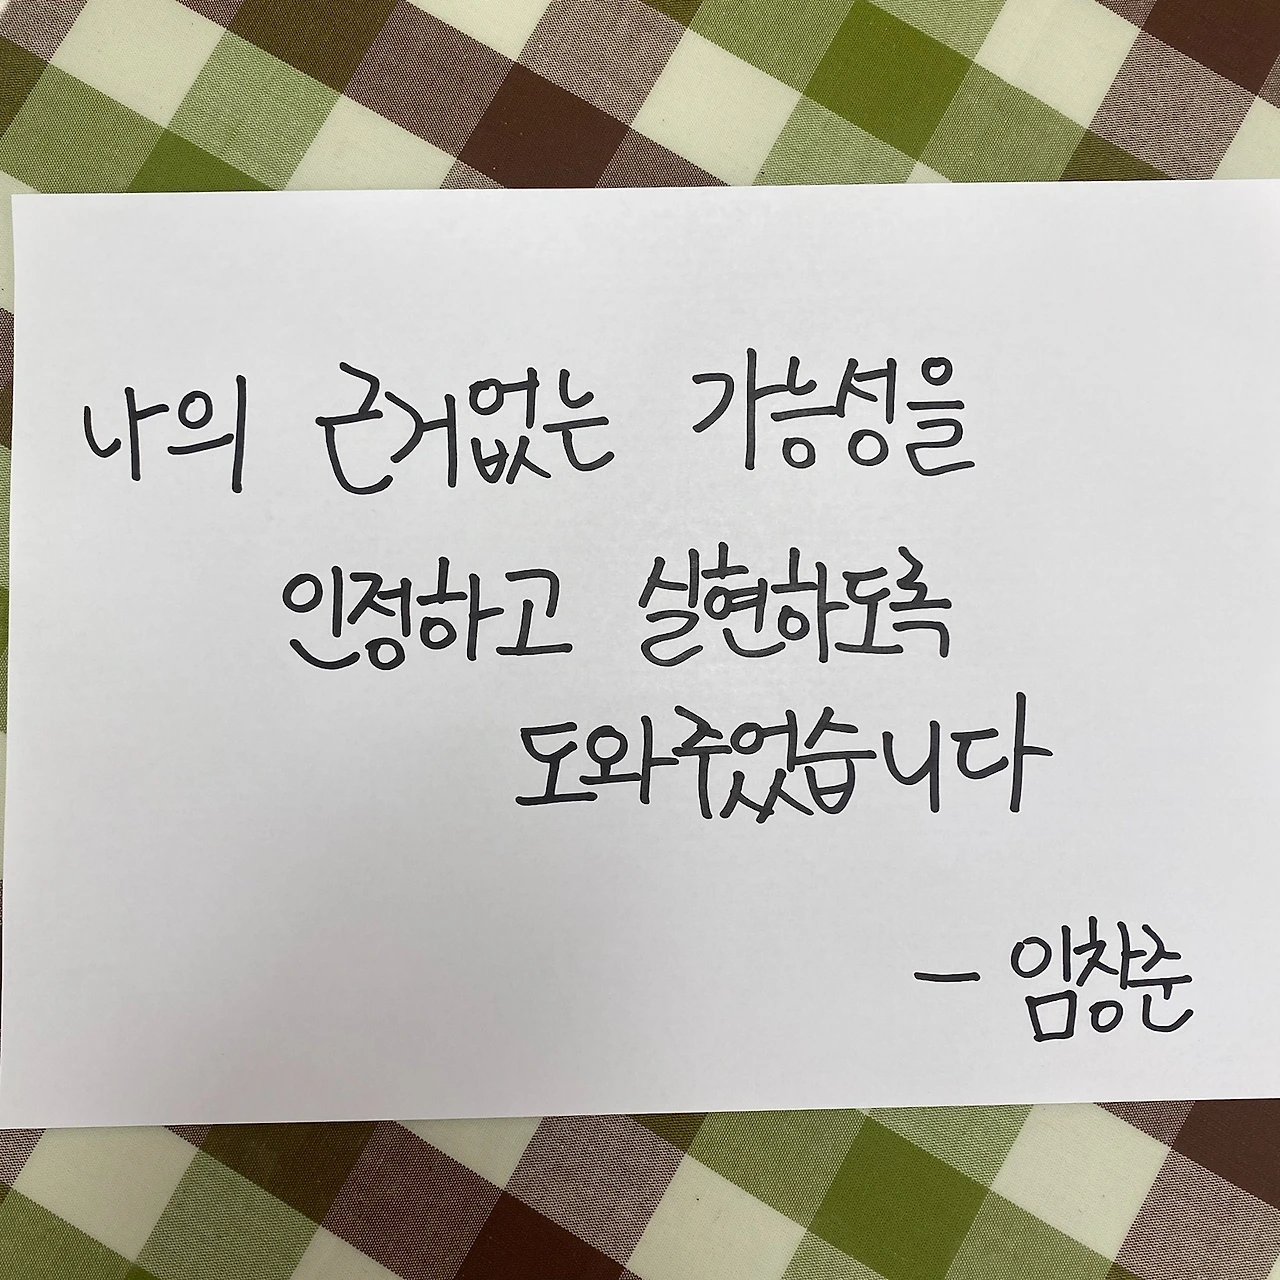 나의 근거없는 가능성을
인정하고 실현하도록
도와주었습니다
- 임창준